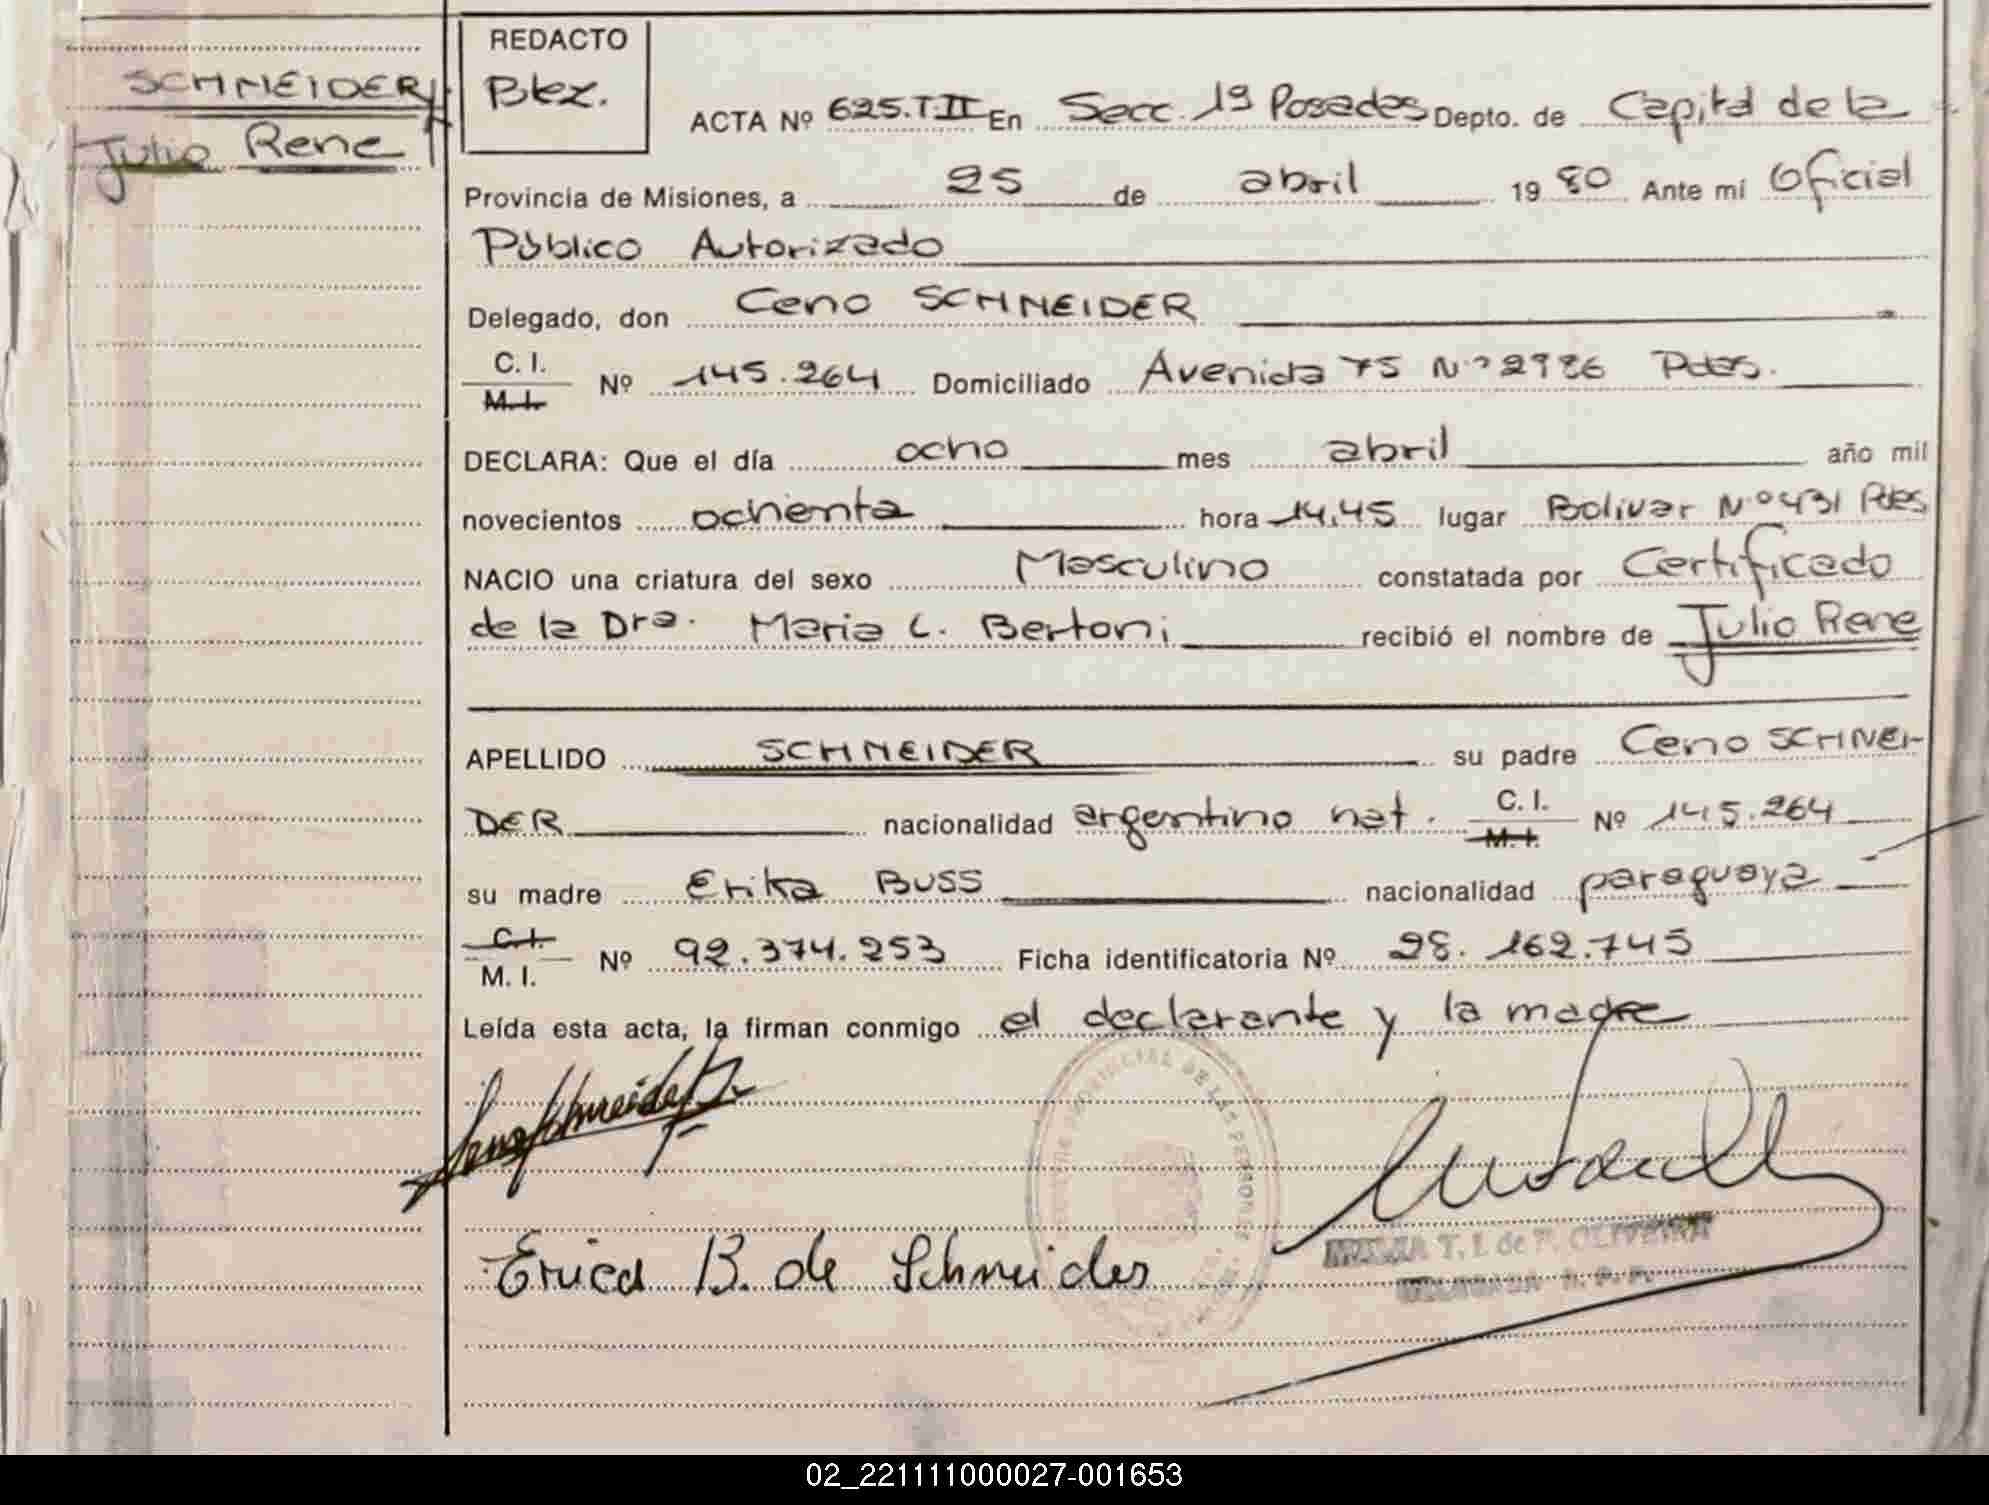 SCHNEIDER
Julio Rene
REDACTO
Btez.
ACTA Nº 625.T.II En Secc. 1ª Posadas Depto. de Capital de la
Provincia de Misiones, a 25 de abril 1980 Ante mí Oficial
Público Autorizado
Delegado, don Ceno SCHNEIDER
C. I.
M. I.
Nº 145.264 Domiciliado Avenida 75 Nº Pdas.
DECLARA: Que el día ocho mes abril año mil
novecientos ochenta hora 14,45 lugar Bolivar Nº 431 Pdas
NACIO una criatura del sexo Masculino constatada por Certificado
de la Dra. Maria L. Bertoni recibió el nombre de Julio Rene
APELLIDO SCHNEIDER su padre Ceno SCHNEI-
DER nacionalidad argentino nat. C. I. M. I. Nº 145.264
su madre Erika BUSS nacionalidad paraguaya
C. I.
M. I.
Nº 92.374.253 Ficha identificatoria Nº 28.162.745
Leída esta acta, la firman conmigo el declarante y la madre
Erica B. de Schneider
T. I. de F. OLIVEIRA
02_221111000027-001653